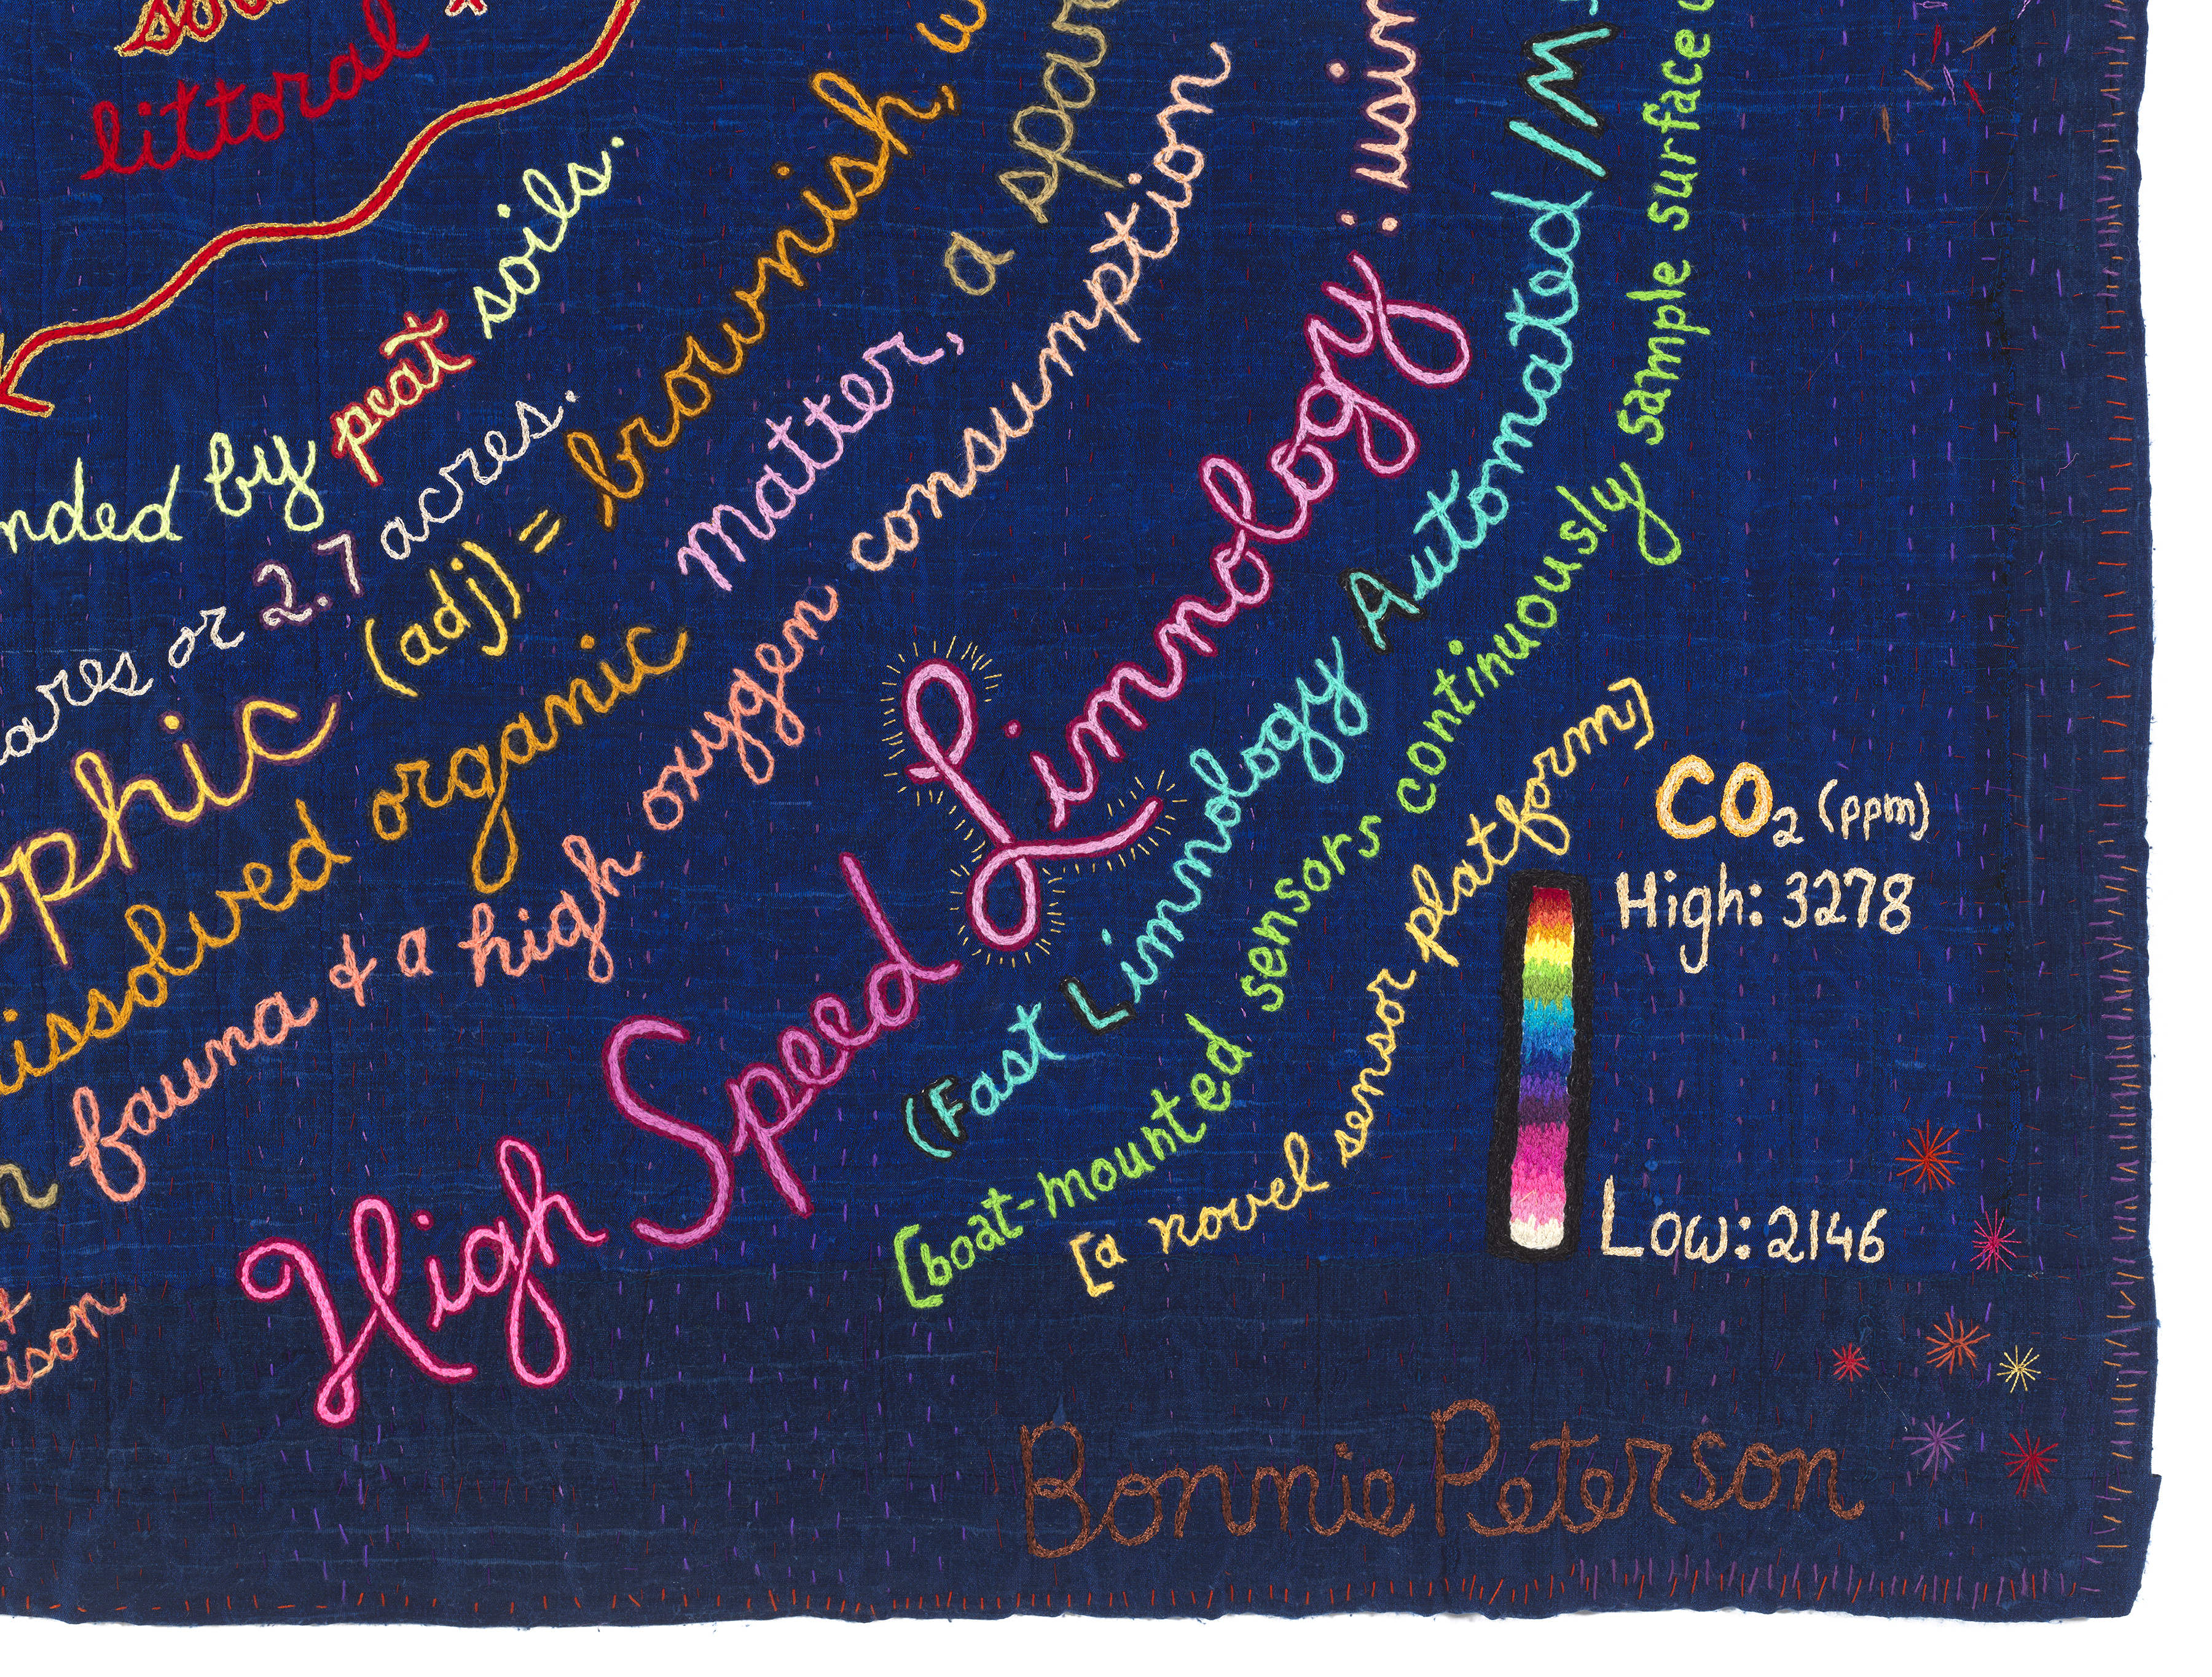 littoral
by peat soils.
or 2.7 acres.
(adj) = brownish,
organic matter, a
fauna & a high oxygen consumption
High Speed Limnology :
(Fast Limnology Automated
[boat-mounted sensors continuously sample surface
[a novel sensor platform]
CO₂ (ppm)
High: 3278
Low: 2146
Bonnie Peterson